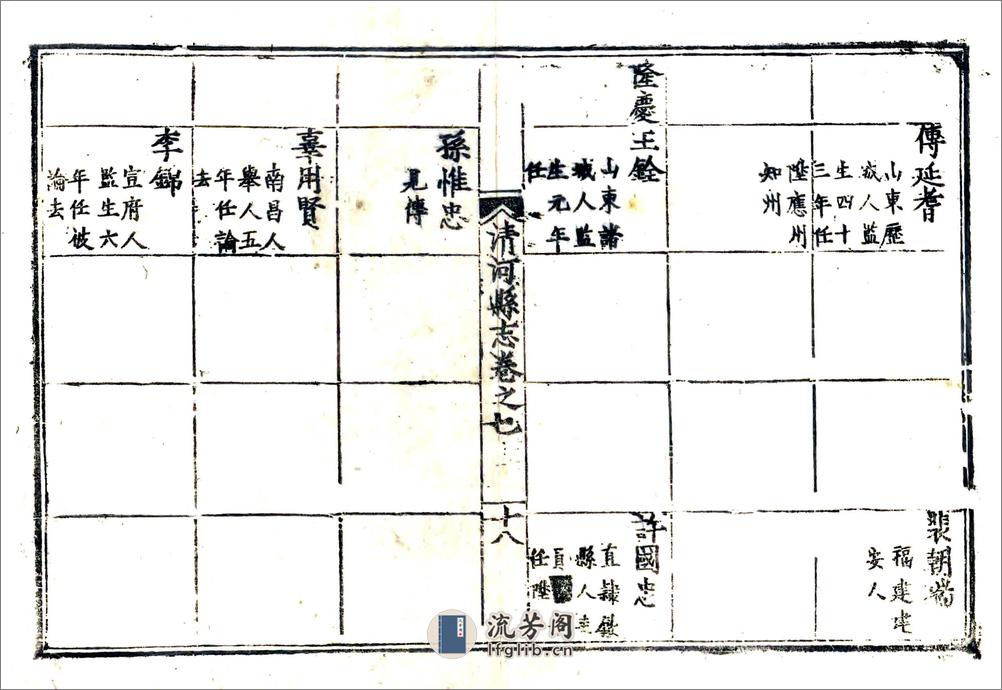 傅延耆
山東歷
城人監
生四十
三年任
陞應州
知州
裴朝端
福建建
安人
隆慶
王銓
山東諸
城人監
生元年
任
許國忠
直隸
縣人
任陞
清河縣志卷之七
十八
孫惟忠
見傳
用賢
南昌人
舉人五
年任論
去
李錦
宣府人
監生六
年任被
論去
流芳阁
lfglib.cn